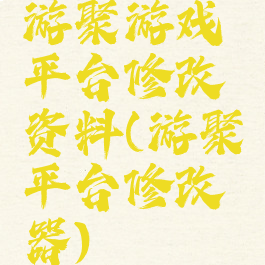 游聚游戏
平台修改
资料(游聚
平台修改
器)